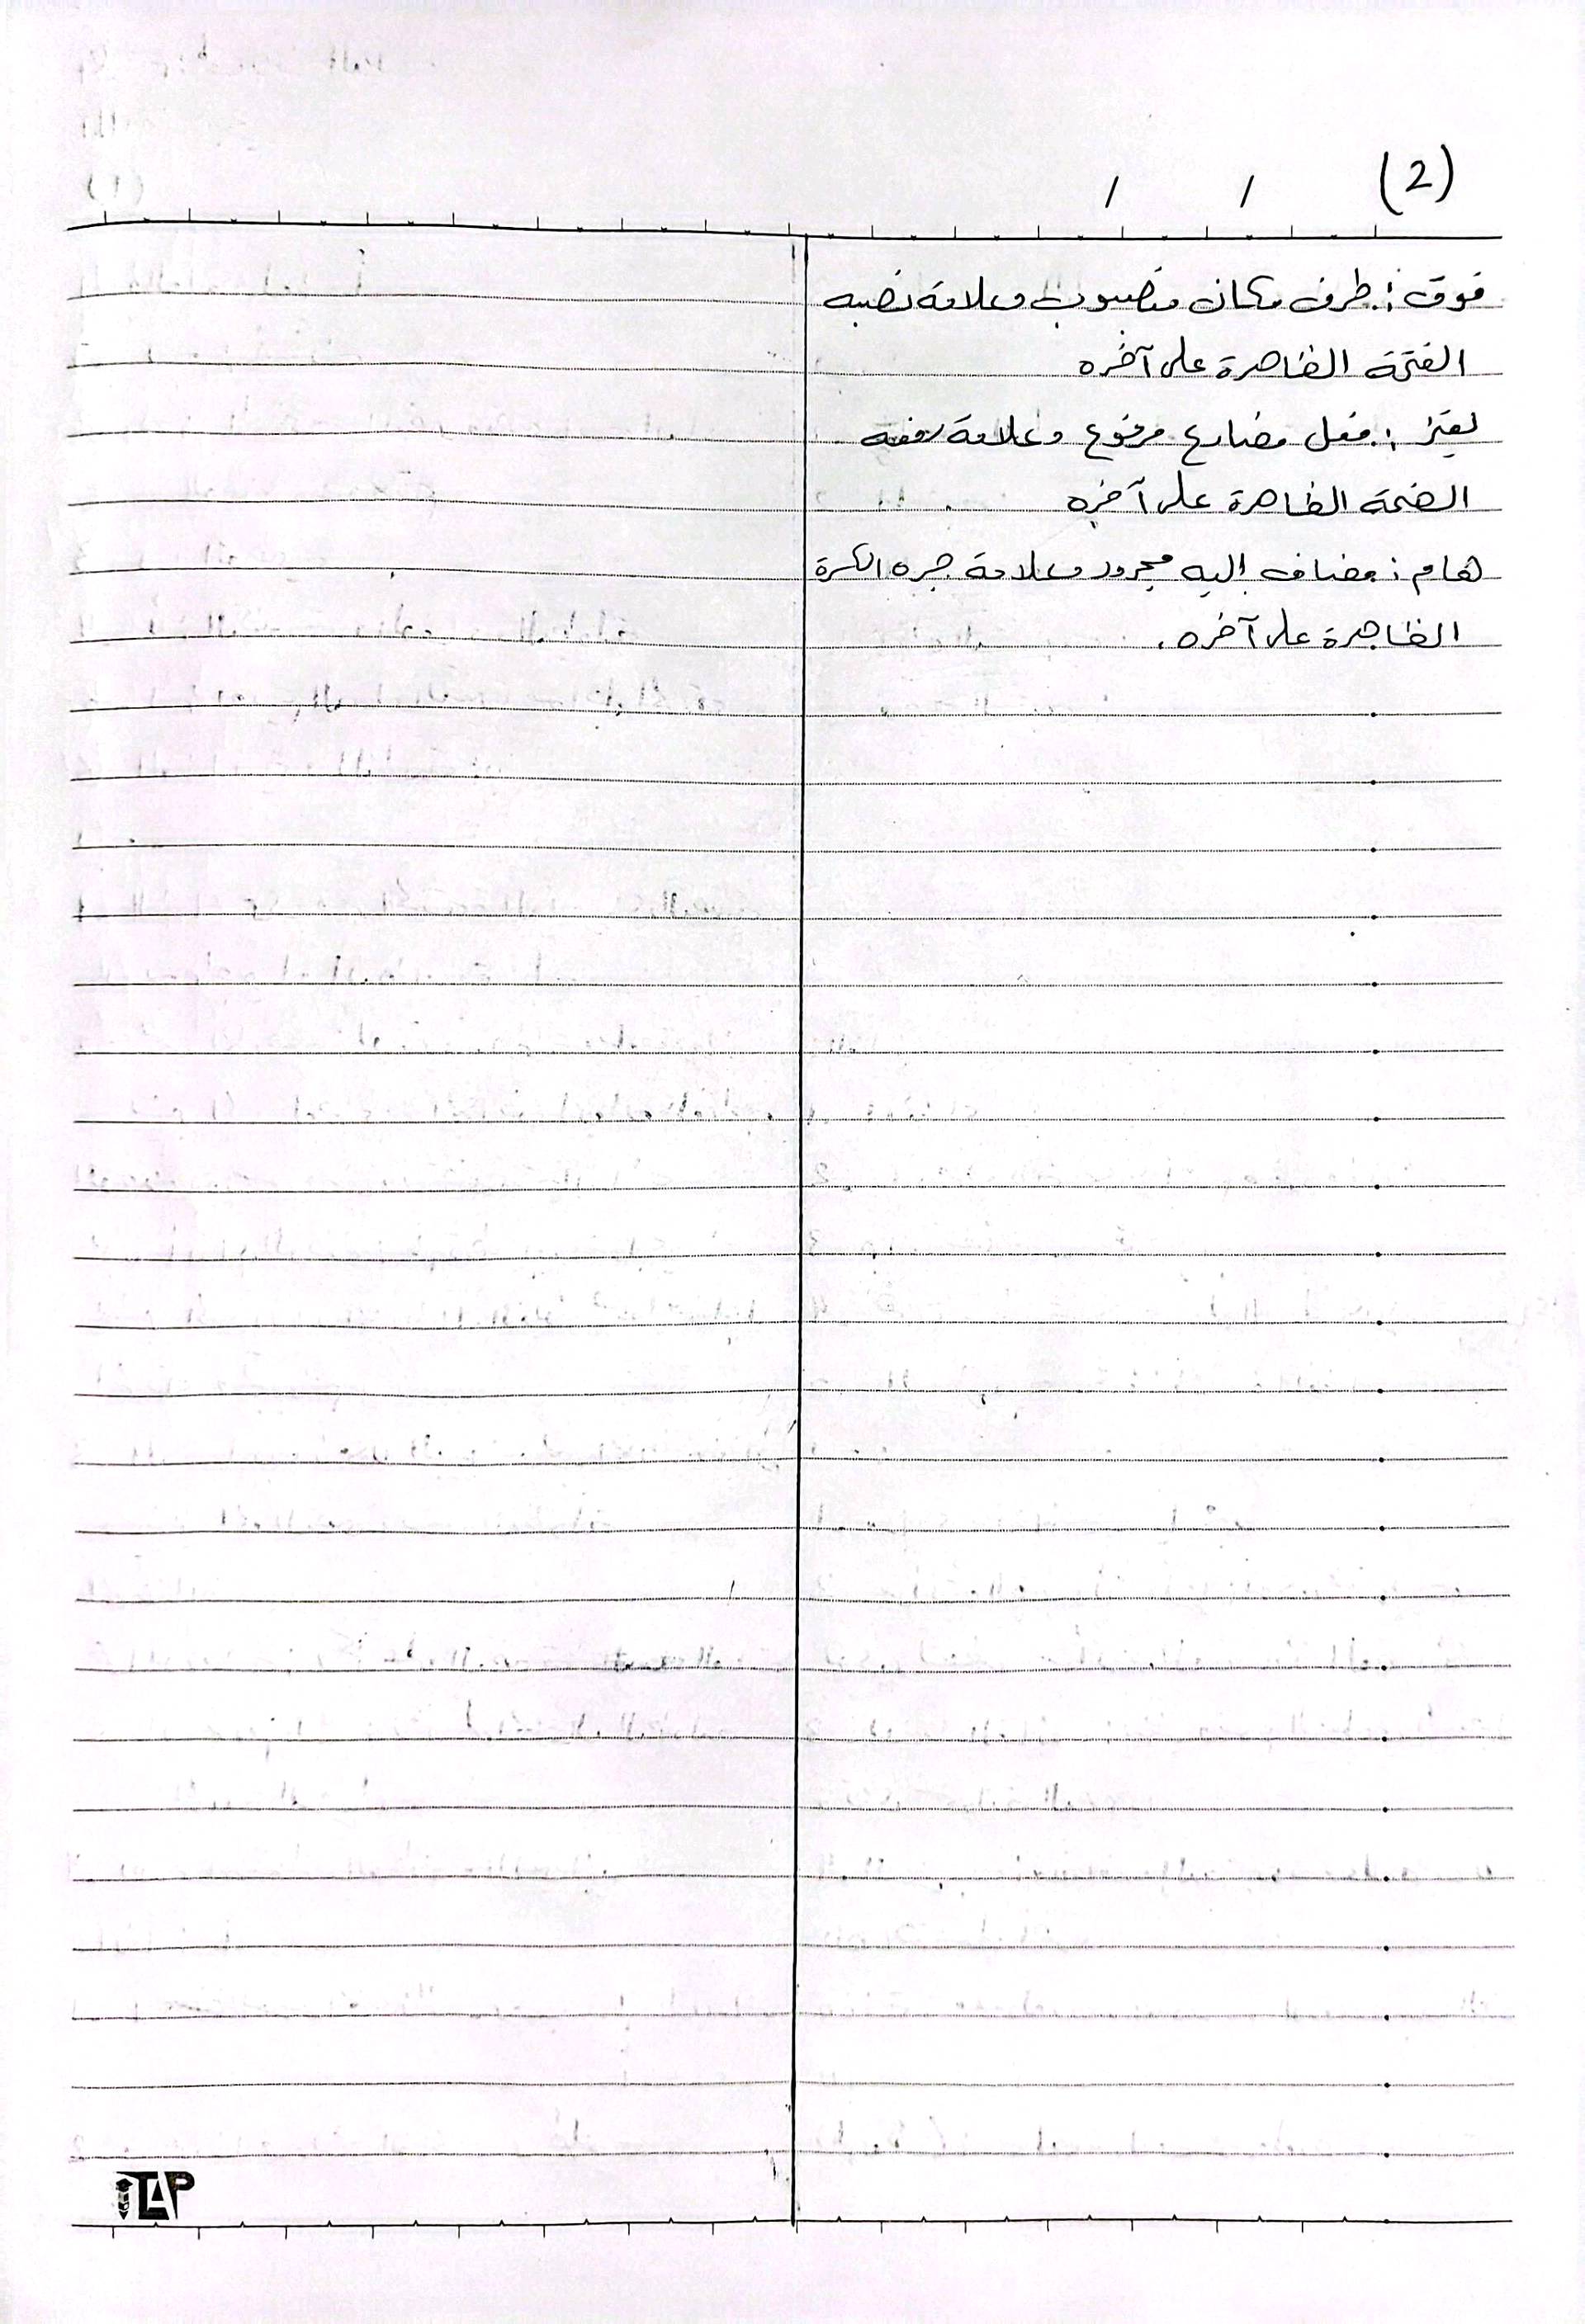 (2)
/ /
فوق : ظرف مكان منصوب وعلامة نصبه
الفتحة الظاهرة على آخره
: فعل مضارع مرفوع وعلامة رفعه
الضمة الظاهرة على آخره
هام : مضاف إليه مجرور وعلامة جره الكسرة
الظاهرة على آخره .
TAP